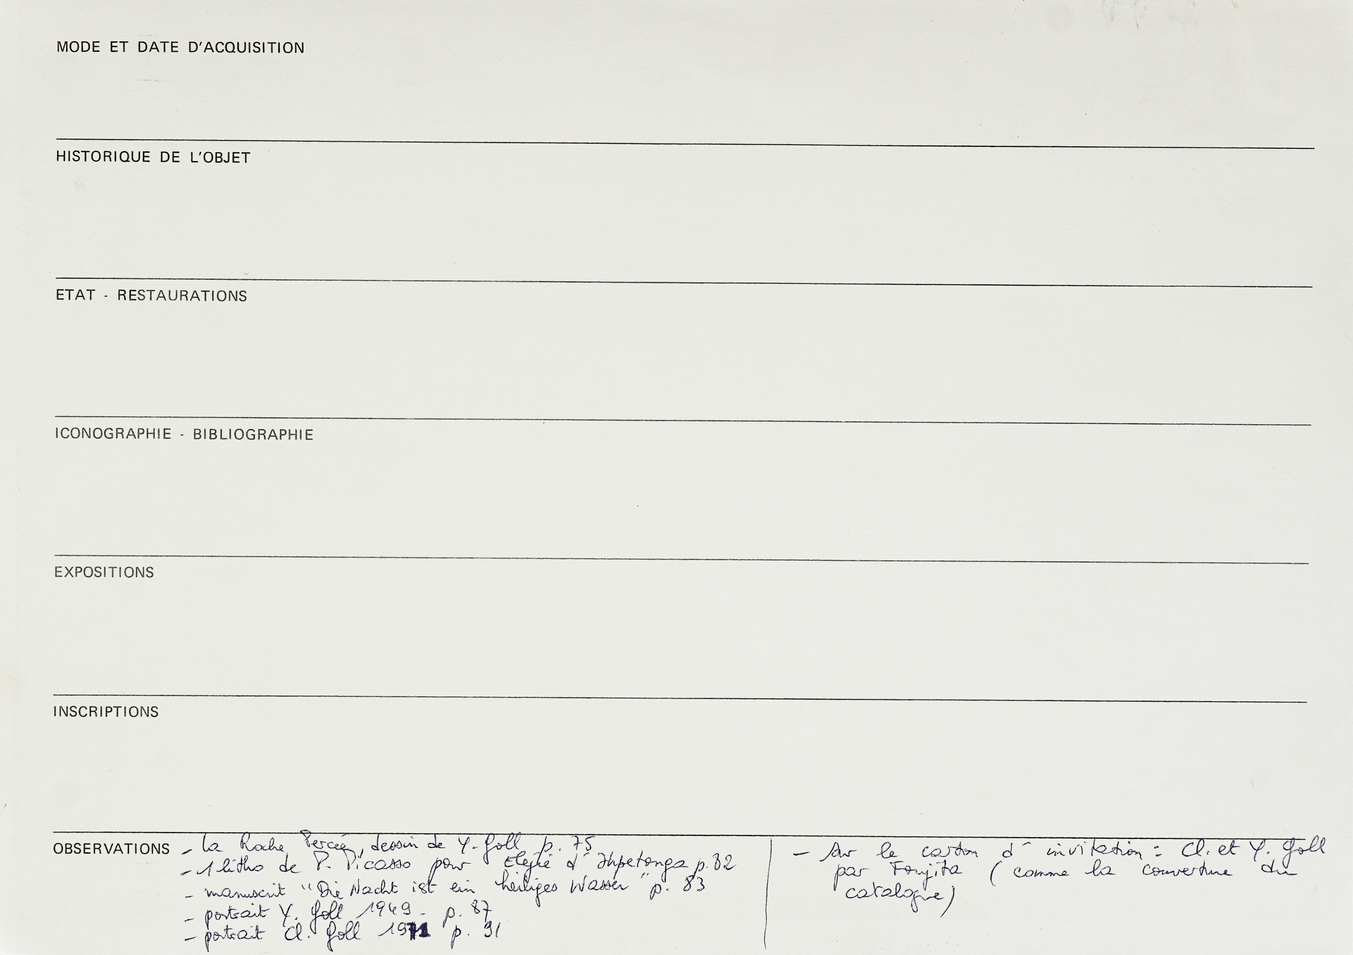 MODE ET DATE D'ACQUISITION
HISTORIQUE DE L'OBJET
ETAT - RESTAURATIONS
ICONOGRAPHIE - BIBLIOGRAPHIE
EXPOSITIONS
INSCRIPTIONS
OBSERVATIONS
- La Roche Percée, dessin de Y. Goll p. 75
- 1 litho de P. Picasso pour Elegie d'Ihpetonga p. 82
- manuscrit "Die Nacht ist ein heiliges Wasser" p. 83
- portrait Y. Goll 1949 - p. 87
- portrait Cl. Goll 1971 p. 91
- Sur le carton d'invitation : Cl. et Y. Goll
par Foujita (comme la couverture du
catalogue)